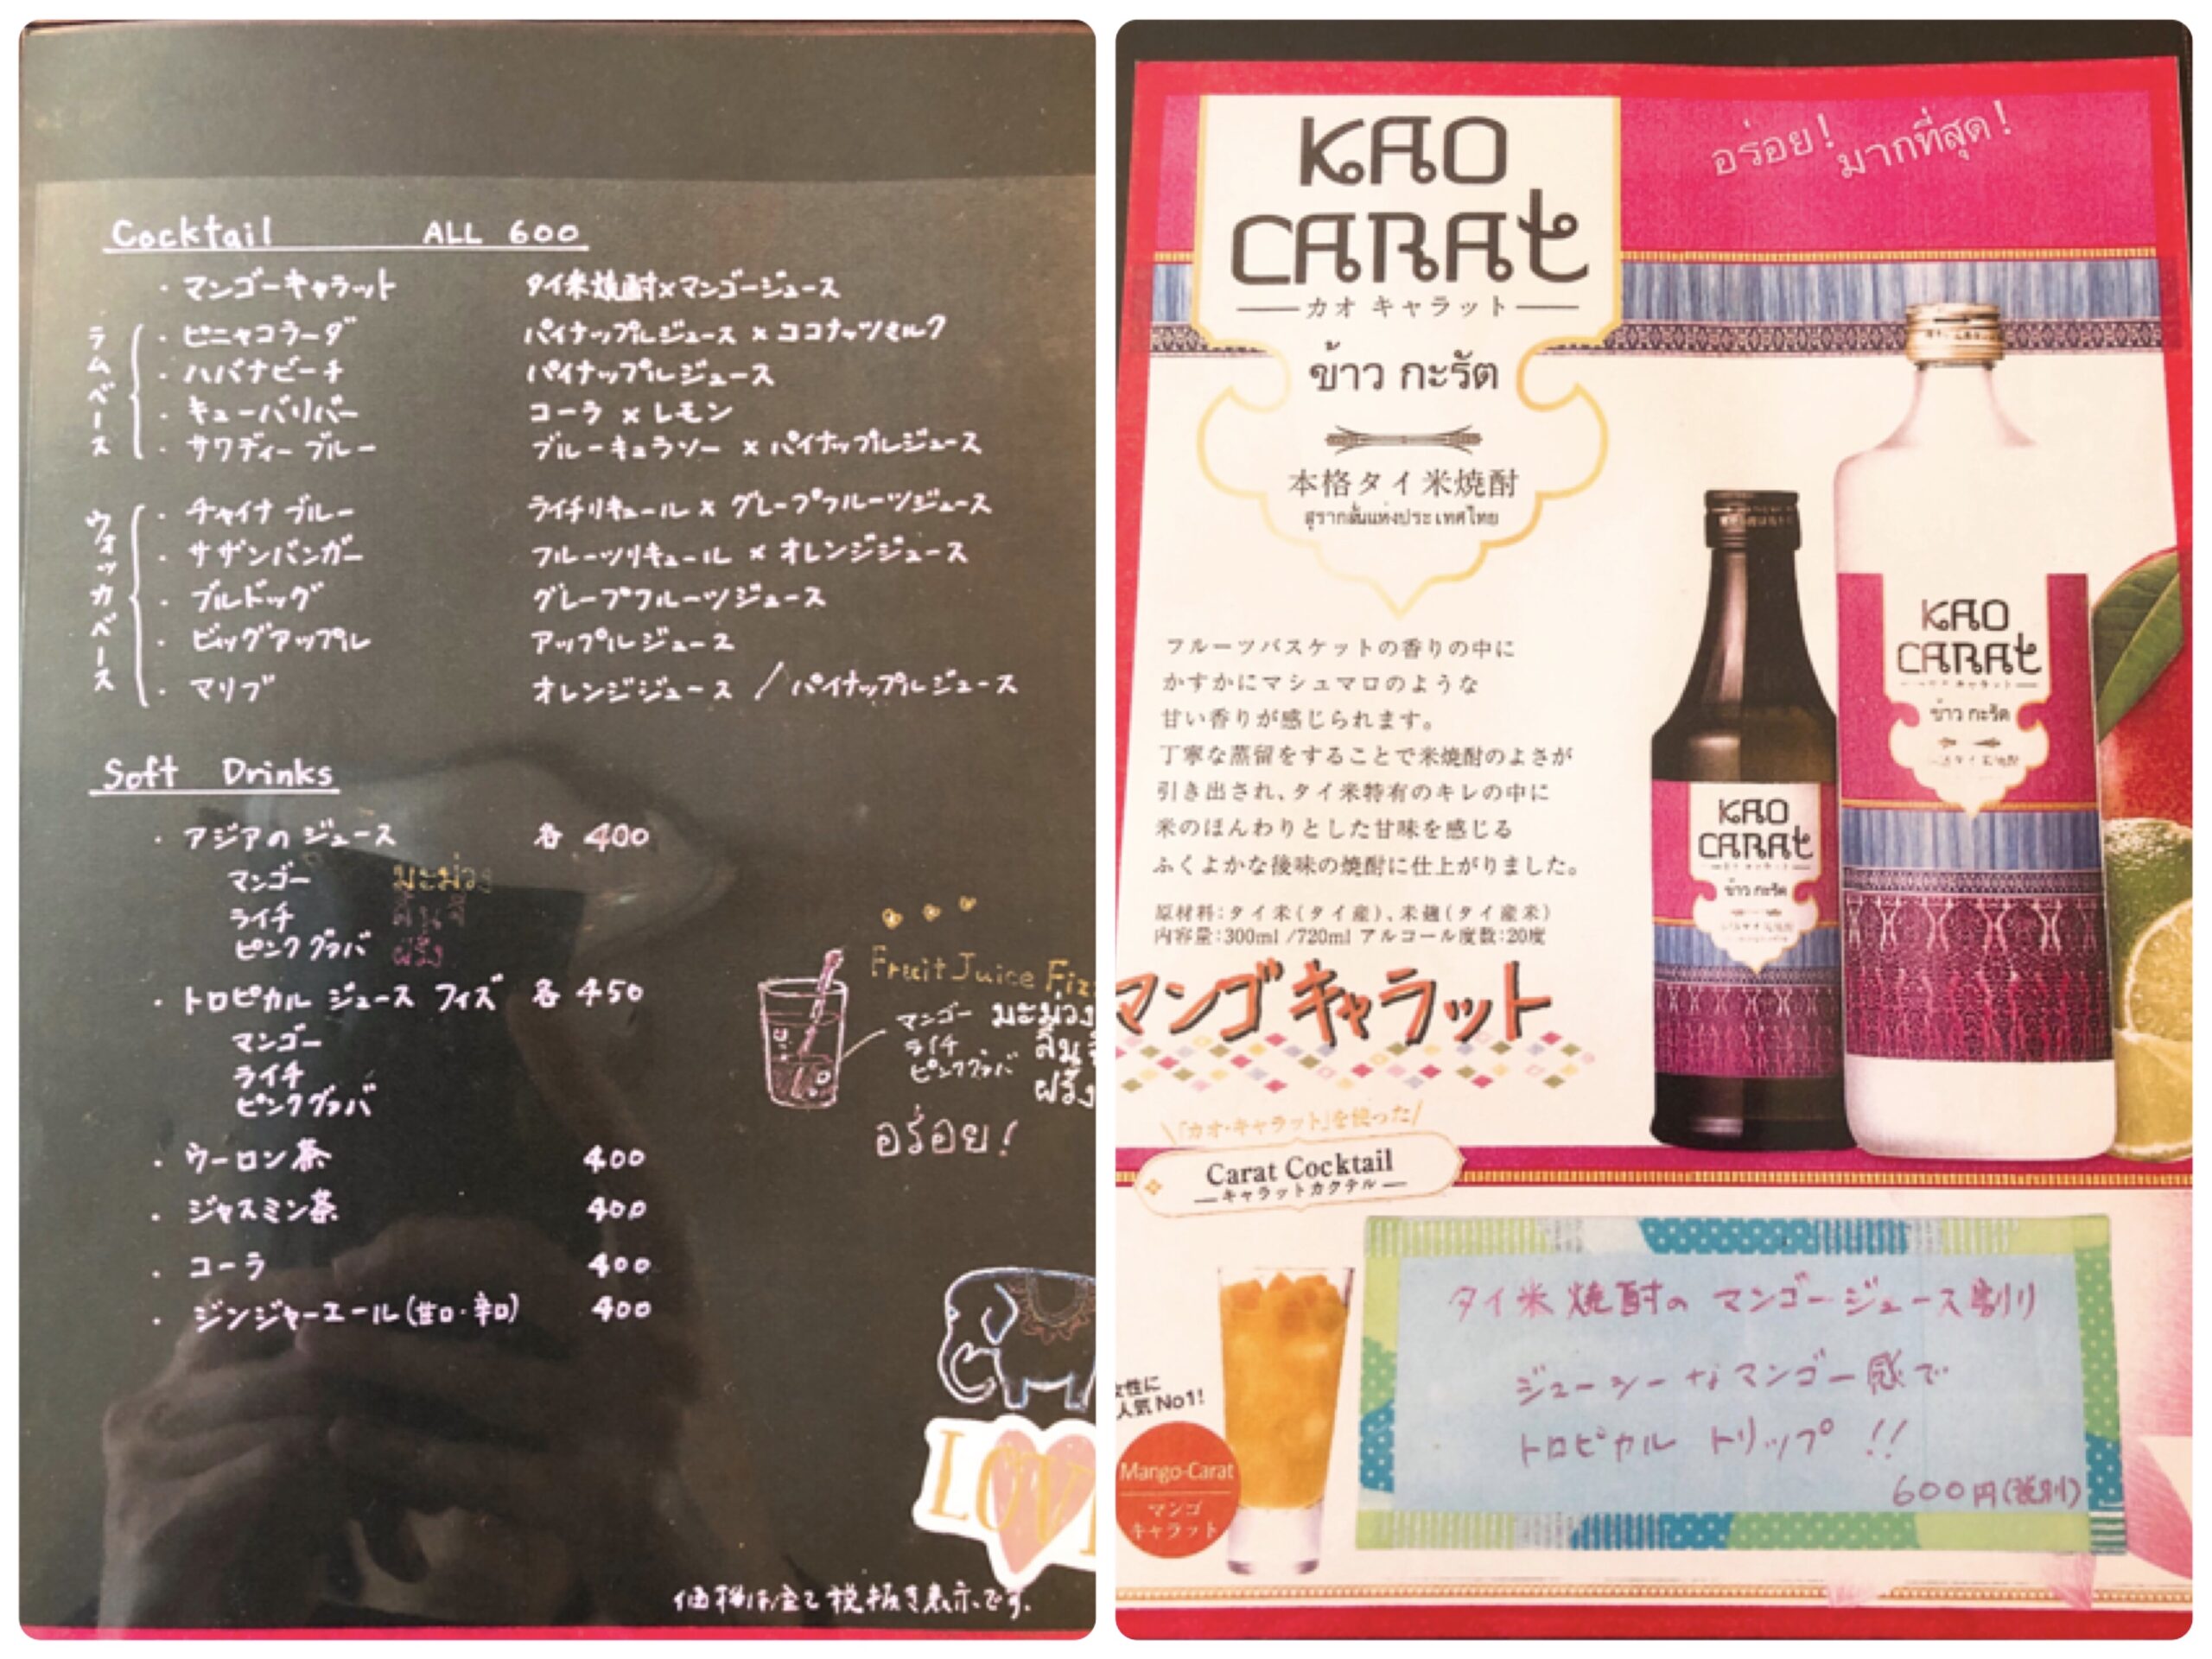 Cocktail ALL 600
・マンゴーキャラット タイ米焼酎×マンゴージュース
ラムベース
・ピニャコラーダ パイナップルジュース × ココナッツミルク
・ハバナビーチ パイナップルジュース
・キューバリバー コーラ × レモン
・サワディーブルー ブルーキュラソー × パイナップルジュース
ウォッカベース
・チャイナブルー ライチリキュール × グレープフルーツジュース
・サザンバンガー フルーツリキュール × オレンジジュース
・ブルドッグ グレープフルーツジュース
・ビッグアップル アップルジュース
・マリブ オレンジジュース / パイナップルジュース
Soft Drinks
・アジアのジュース 各 400
マンゴー มะม่วง
ライチ ลิ้นจี่
ピンクグァバ ฝรั่ง
・トロピカル ジュース フィズ 各 450
マンゴー
ライチ
ピンクグァバ
・ウーロン茶 400
・ジャスミン茶 400
・コーラ 400
・ジンジャーエール(甘口・辛口) 400
Fruit Juice Fiz
マンゴー มะม่วง
ライチ ลิ้น
ピンクグァバ ฝรั่ง
อร่อย!
LOVE
価格は全て税抜き表示です。
KAO
CARAt
カオ キャラット
ข้าว กะรัต
本格タイ米焼酎
สุรากลั่นแห่งประเทศไทย
อร่อย! มากที่สุด!
フルーツバスケットの香りの中に
かすかにマシュマロのような
甘い香りが感じられます。
丁寧な蒸留をすることで米焼酎のよさが
引き出され、タイ米特有のキレの中に
米のほんわりとした甘味を感じる
ふくよかな後味の焼酎に仕上がりました。
原材料:タイ米(タイ産)、米麹(タイ産米)
内容量:300ml /720ml アルコール度数:20度
マンゴキャラット
KAO
CARAt
カオ キャラット
ข้าว กะรัต
KAO
CARAt
キャラット
ข้าว กะรัต
本格タイ米焼酎
\「カオ・キャラット」を使った/
Carat Cocktail
キャラットカクテル
女性に
人気No1!
Mango-Carat
マンゴ
キャラット
タイ米焼酎のマンゴージュース割り
ジューシーなマンゴー感で
トロピカル トリップ !!
600円(税別)